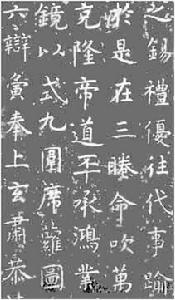 之錫禮優往代事踰
於是在三眷命吹萬
克隆帝道丕承鴻業
鏡以式九圍席蘿圖
六辯夤奉上玄肅恭